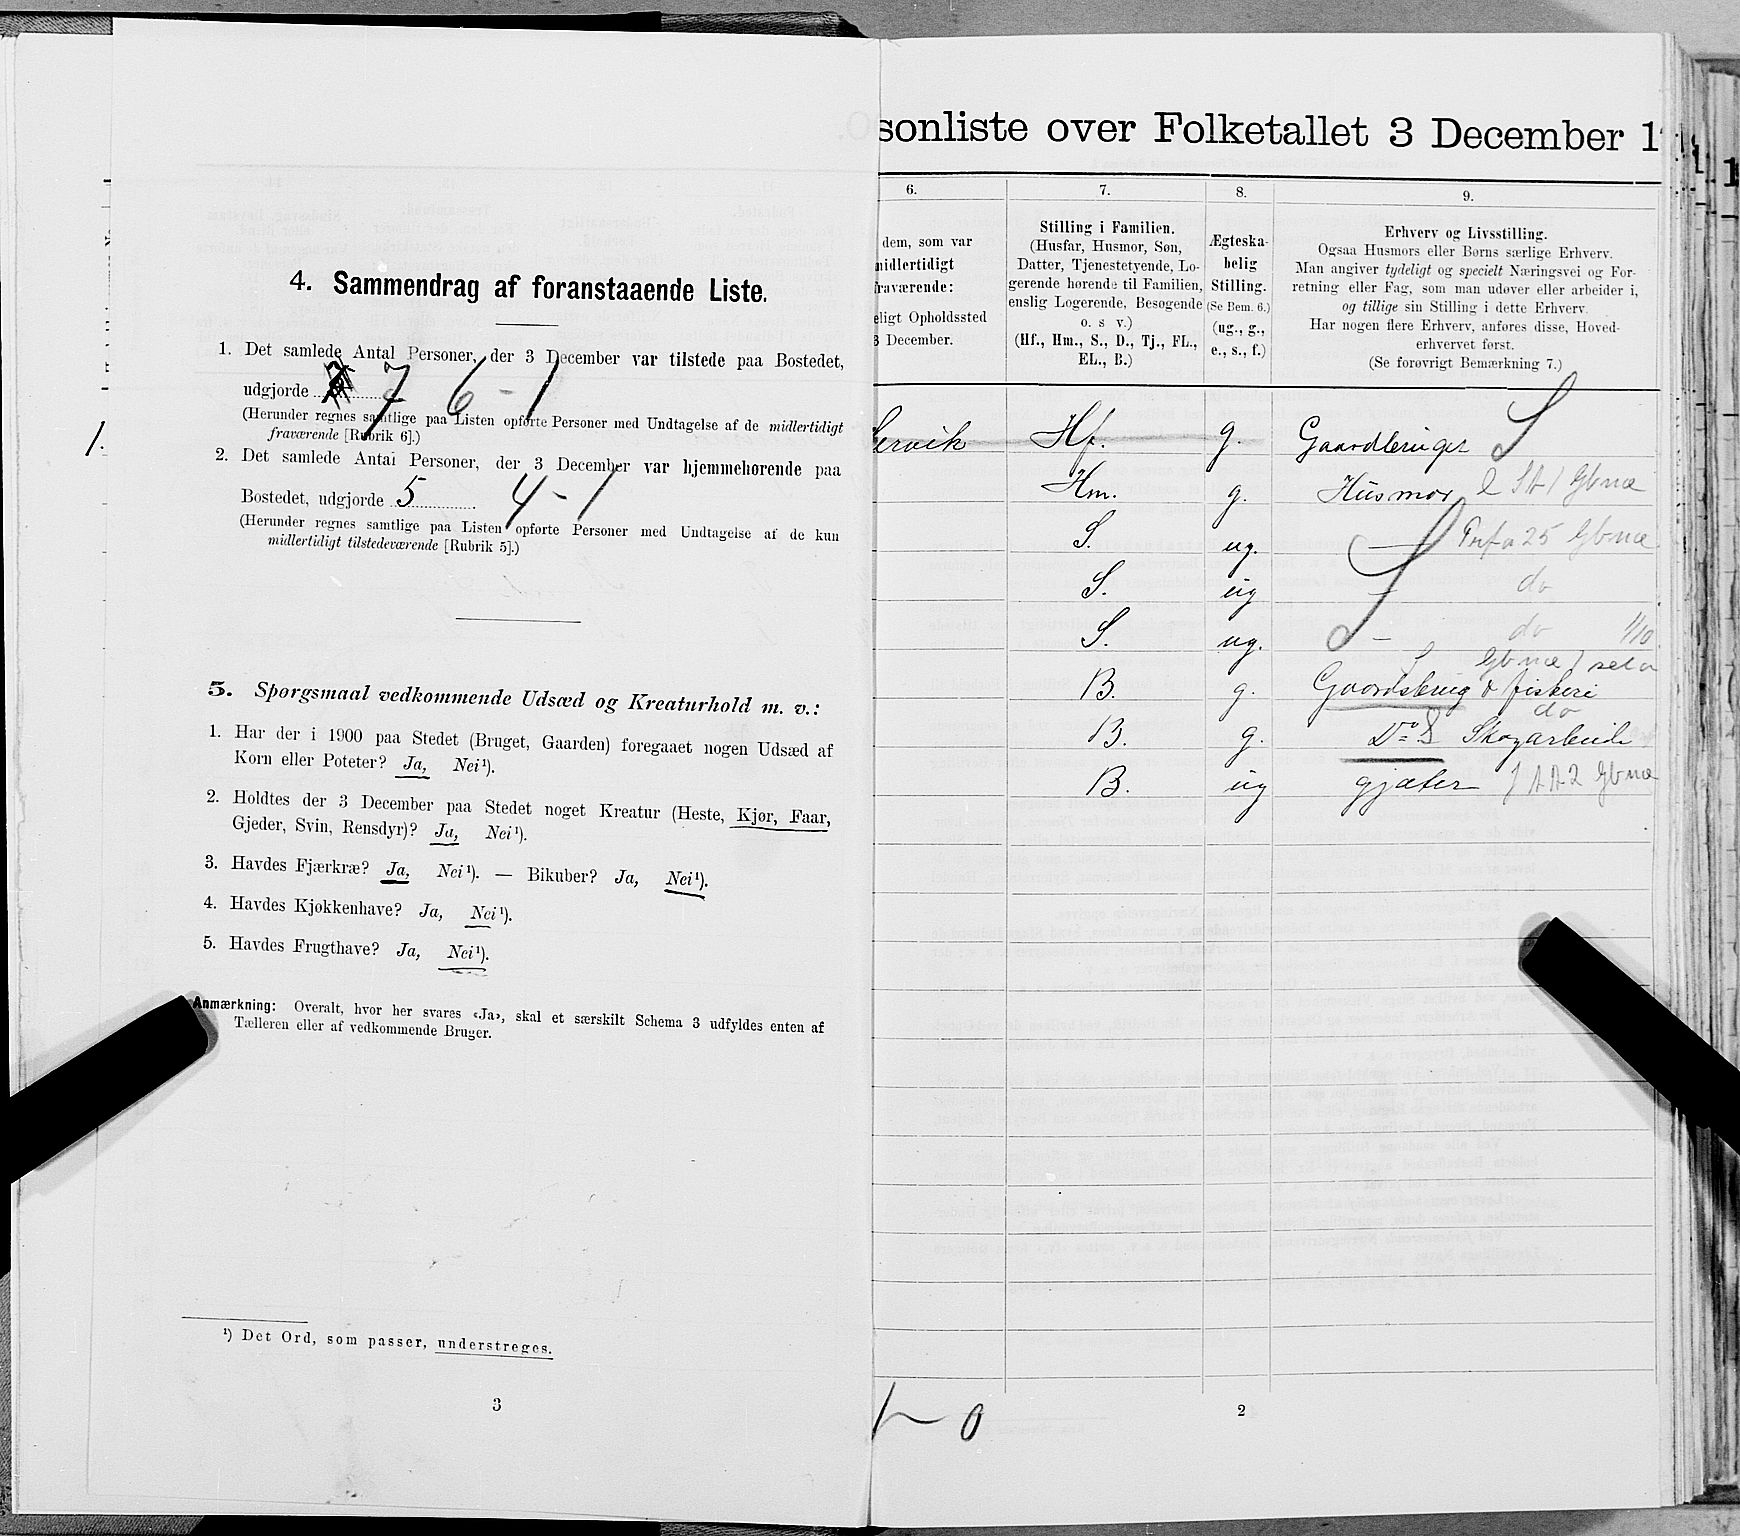 4. Sammendrag af foranstaaende Liste.
1. Det samlede Antal Personer, der 3 December var tilstede paa Bostedet,
udgjorde 7 6 - 1
(Herunder regnes samtlige paa Listen opførte Personer med Undtagelse af de midlertidigt
fraværende [Rubrik 6].)
1.
2. Det samlede Antal Personer, der 3 December var hjemmehørende paa
Bostedet, udgjorde 5 4 - 1
(Herunder regnes samtlige paa Listen opførte Personer med Undtagelse af de kun
midlertidigt tilstedeværende [Rubrik 5].)
5. Spørgsmaal vedkommende Udsæd og Kreaturhold m. v.:
1. Har der i 1900 paa Stedet (Bruget, Gaarden) foregaaet nogen Udsæd af
Korn eller Poteter? Ja, Nei¹).
2. Holdtes der 3 December paa Stedet noget Kreatur (Heste, Kjør, Faar,
Gjeder, Svin, Rensdyr)? Ja, Nei¹).
3. Havdes Fjærkræ? Ja, Nei¹). — Bikuber? Ja, Nei¹).
4. Havdes Kjøkkenhave? Ja, Nei¹).
5. Havdes Frugthave? Ja, Nei¹).
Anmærkning: Overalt, hvor her svares «Ja», skal et særskilt Schema 3 udfyldes enten af
Tælleren eller af vedkommende Bruger.
¹) Det Ord, som passer, understreges.
3
sonliste over Folketallet 3 December 1
6.
dem, som var
midlertidigt
fraværende:
eligt Opholdssted
3 December.
7.
Stilling i Familien.
(Husfar, Husmor, Søn,
Datter, Tjenestetyende, Lo-
gerende hørende til Familien,
enslig Logerende, Besøgende
o. s v.)
(Hf., Hm., S., D., Tj., FL.,
EL., B.)
8.
Ægteska-
belig
Stilling.
(Se Bem. 6.)
(ug., g.,
e., s., f.)
9.
Erhverv og Livsstilling.
Ogsaa Husmors eller Børns særlige Erhverv.
Man angiver tydeligt og specielt Næringsvei og For-
retning eller Fag, som man udøver eller arbeider i,
og tillige sin Stilling i dette Erhverv.
Har nogen flere Erhverv, anføres disse, Hoved-
erhvervet først.
(Se forøvrigt Bemærkning 7.)
ervik Hf. g. Gaardbruger S
Hm. g. Husmor
S. ug. —
S. ug — do
S. ug. — do 1/10
B. g. Gaardsbrug & fiskeri
B. g. Do S Skogarbeide do
B. ug gjæter
1 - 0
2